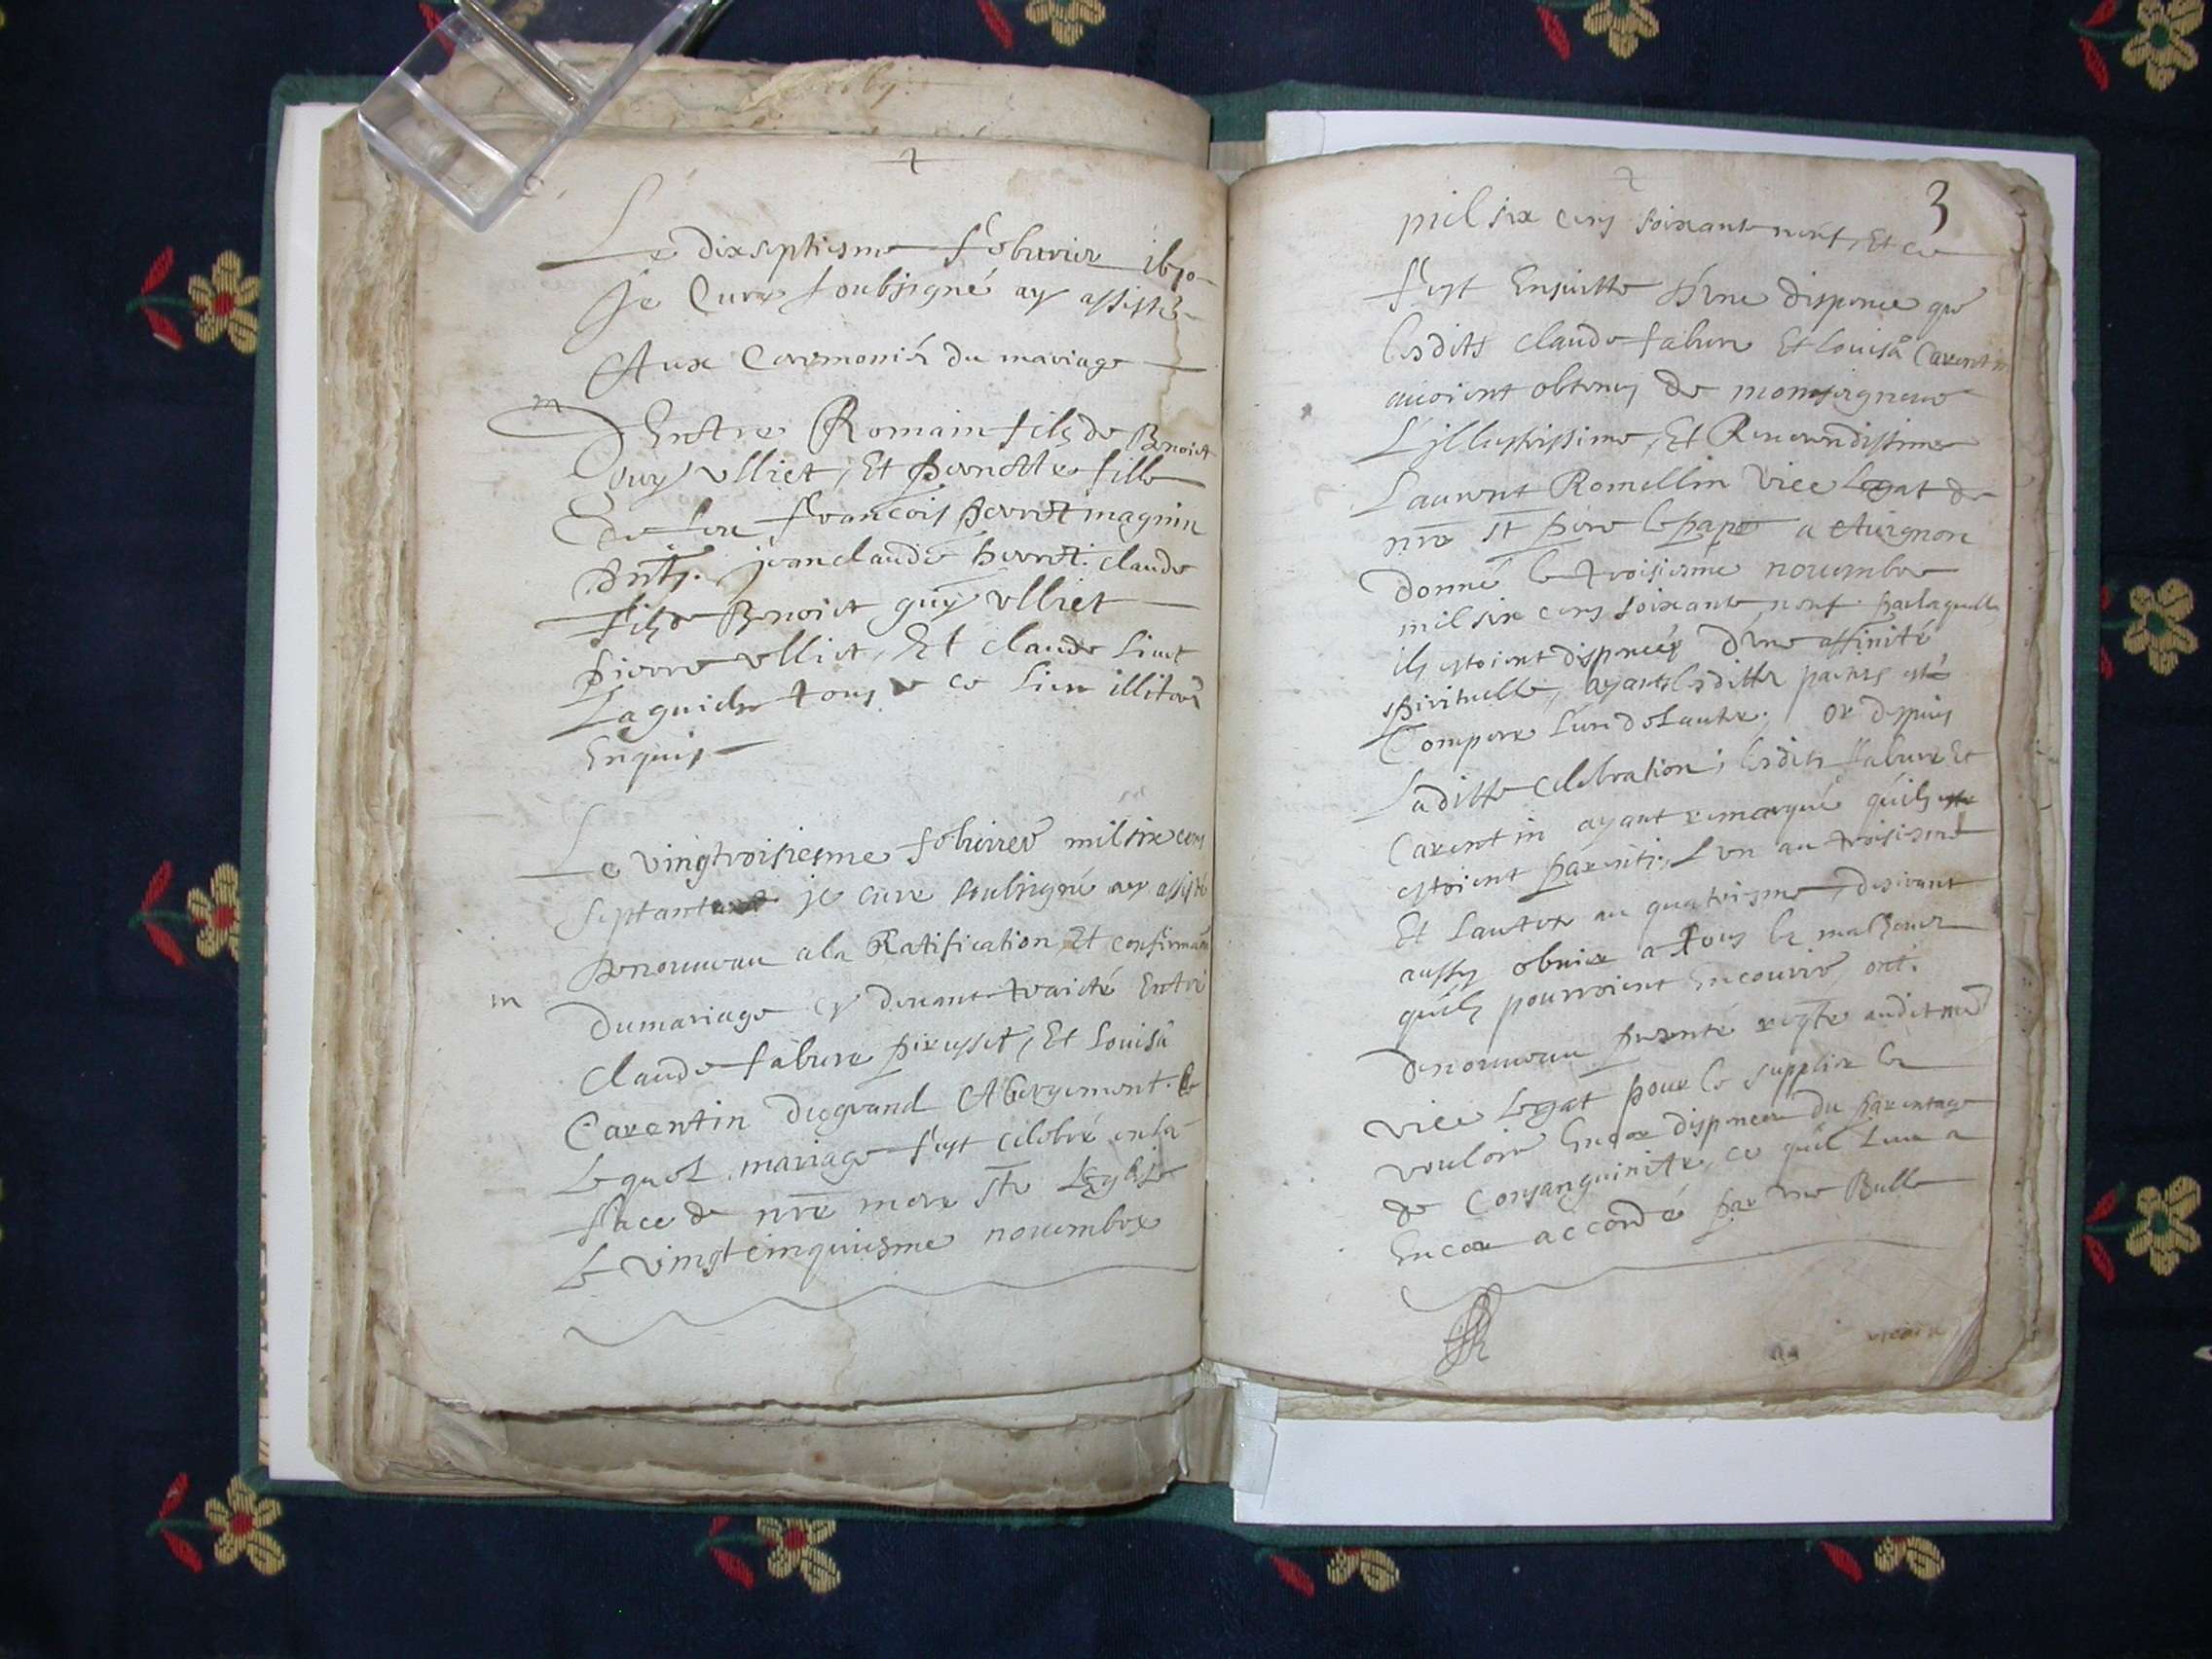 Le dixseptiesme febvrier 1670
Je Cure soubsigné ay assisté
Aux Ceremonies du mariage
m
Entre Romain filz de Benoict
Guy Ulliet, Et Pernette fille
de feu francois Perret magnin
pntz. jean claude Perret. claude
filz de Benoict guy ulliet
pierre ulliet, Et claude
Laguiche tous de ce lieu illiterés
Enquis
Le vingtroisiesme febvrier mil six cens
septante je cure soubsigné ay assisté
denouveau a la Ratification, Et confirmaôn
m
dumariage cy devant traicté Entre
Claude fabure pirusset, Et Louisa
Carentin du grand Abergement.
Lequel mariage fust celebré en la
face de nre mere ste Leglise
Le vingtcinquiesme novembre
3
mil six cens soixante neuf, Et ce
fust Ensuitte d'une dispence que
lesdits claude fabure Et Louisa Carentin
avoient obtenus de monseigneur
L'jllustrissime, Et Reverendissime
Laurent Romellin vice Legat de
nre st pere le pape a Avignon
donné le troisiesme novembre
mil six cens soixante neuf. par laquelle
ils estoient dispencés d'une affinité
spirituelle, ayants lesdittes parties esté
Compere l'un de Lautre. Or despuis
Laditte celebration, lesdits fabure Et
Carentin ayant remarqué quils
estoient parents, L'un au troisiesme
Et Lautre au quatriesme, desirant
aussy obvier a tous les malheurs
quils pourroient encourir, ont.
denouveau presenté reqte audit
vice Legat pour le supplier de
vouloir Encor dispencer du parentage
de Consanguinité, ce quil leur a
Encor accordé par une Bulle